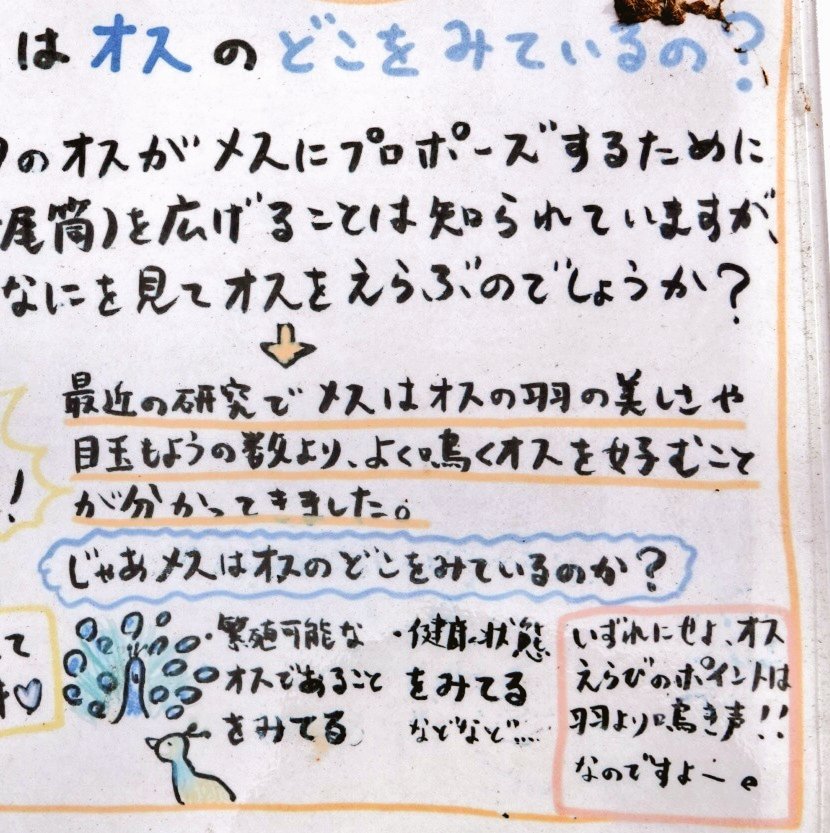 はオスのどこをみているの?
のオスがメスにプロポーズするために
尾筒)を広げることは知られていますが、
なにを見てオスをえらぶのでしょうか?
最近の研究でメスはオスの羽の美しさや
目玉もようの数より、よく鳴くオスを好むこと
!
が分かってきました。
じゃあメスはオスのどこをみているのか?
て
・繁殖可能な
オスであること
をみてる
・健康状態
をみてる
などなど…
いずれにせよ、オス
えらびのポイントは
羽より鳴き声!!
なのですよー。